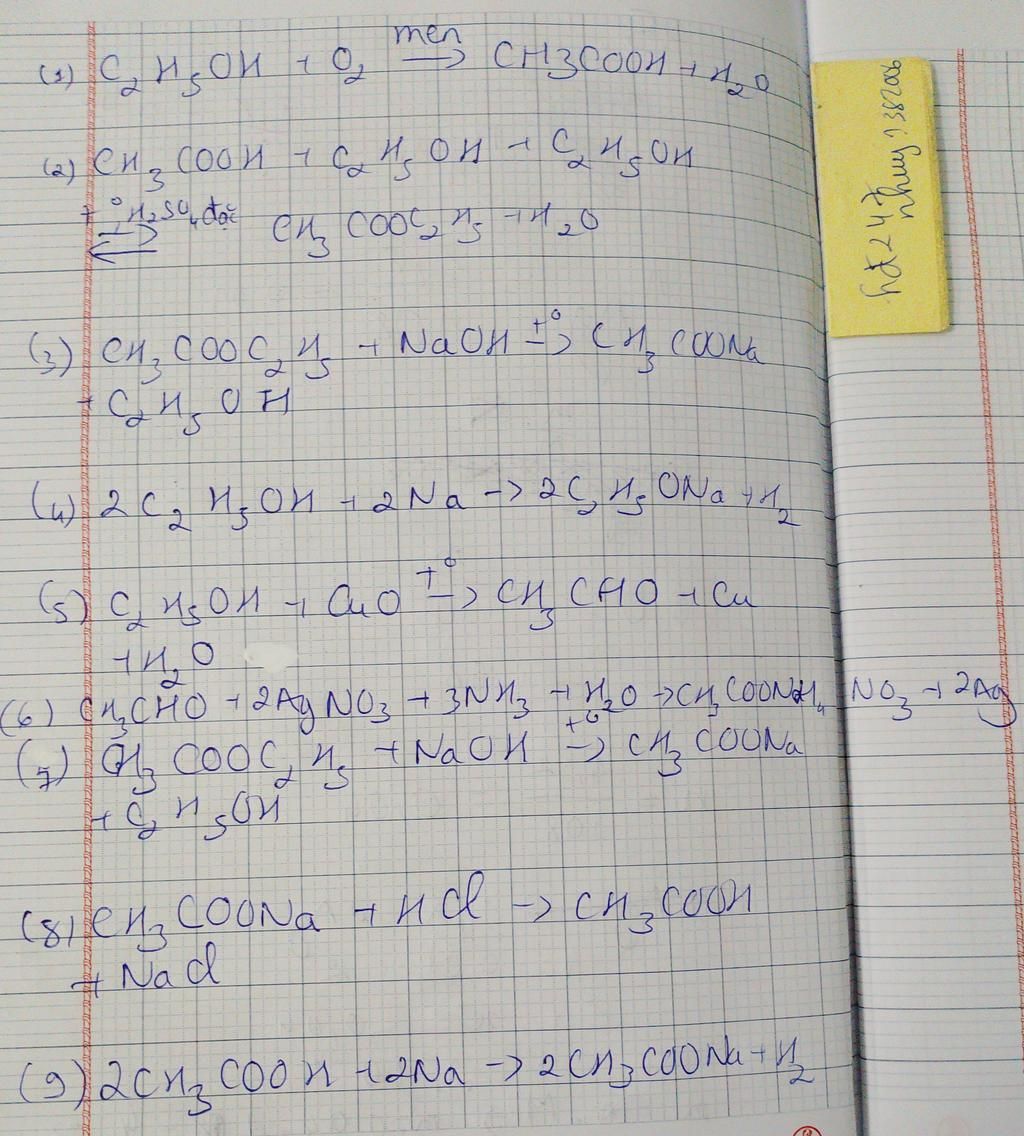 (1) C₂H₅OH + O₂ men → CH3COOH + H₂O
(2) CH₃COOH + C₂H₅OH + C₂H₅OH
t° H₂SO₄ đặc ⇌ CH₃COOC₂H₅ + H₂O
(3) CH₃COOC₂H₅ + NaOH t° → CH₃COONa
+ C₂H₅OH
(4) 2C₂H₅OH + 2Na → 2C₂H₅ONa + H₂
(5) C₂H₅OH + CuO t° → CH₃CHO + Cu
+ H₂O
(6) CH₃CHO + 2AgNO₃ + 3NH₃ + H₂O → CH₃COONH₄ NO₃ + 2Ag
(7) CH₃COOC₂H₅ + NaOH t° → CH₃COONa
+ C₂H₅OH
(8) CH₃COONa + HCl → CH₃COOH
+ NaCl
(9) 2CH₃COOH + 2Na → 2CH₃COONa + H₂